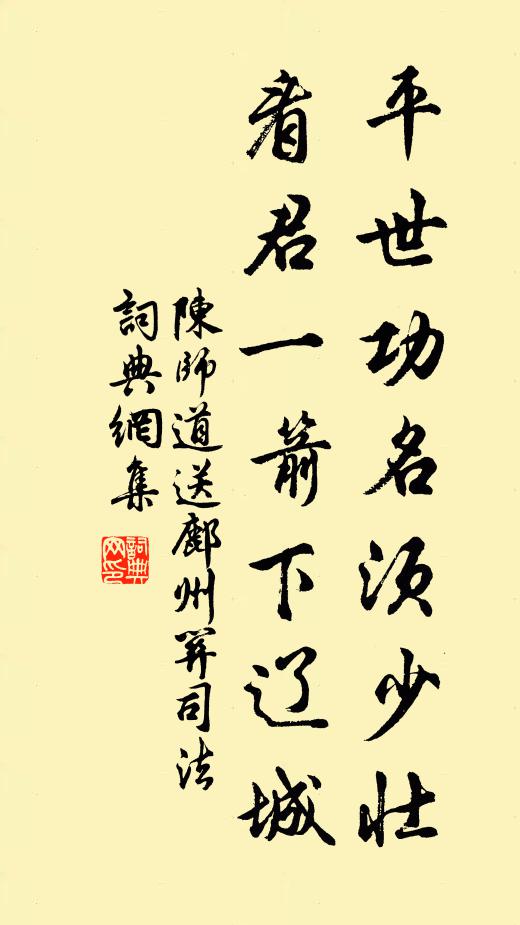 平世功名须少壮
看君一箭下辽城
陳師道送鄜州司法
詞典網集
詞典
网印